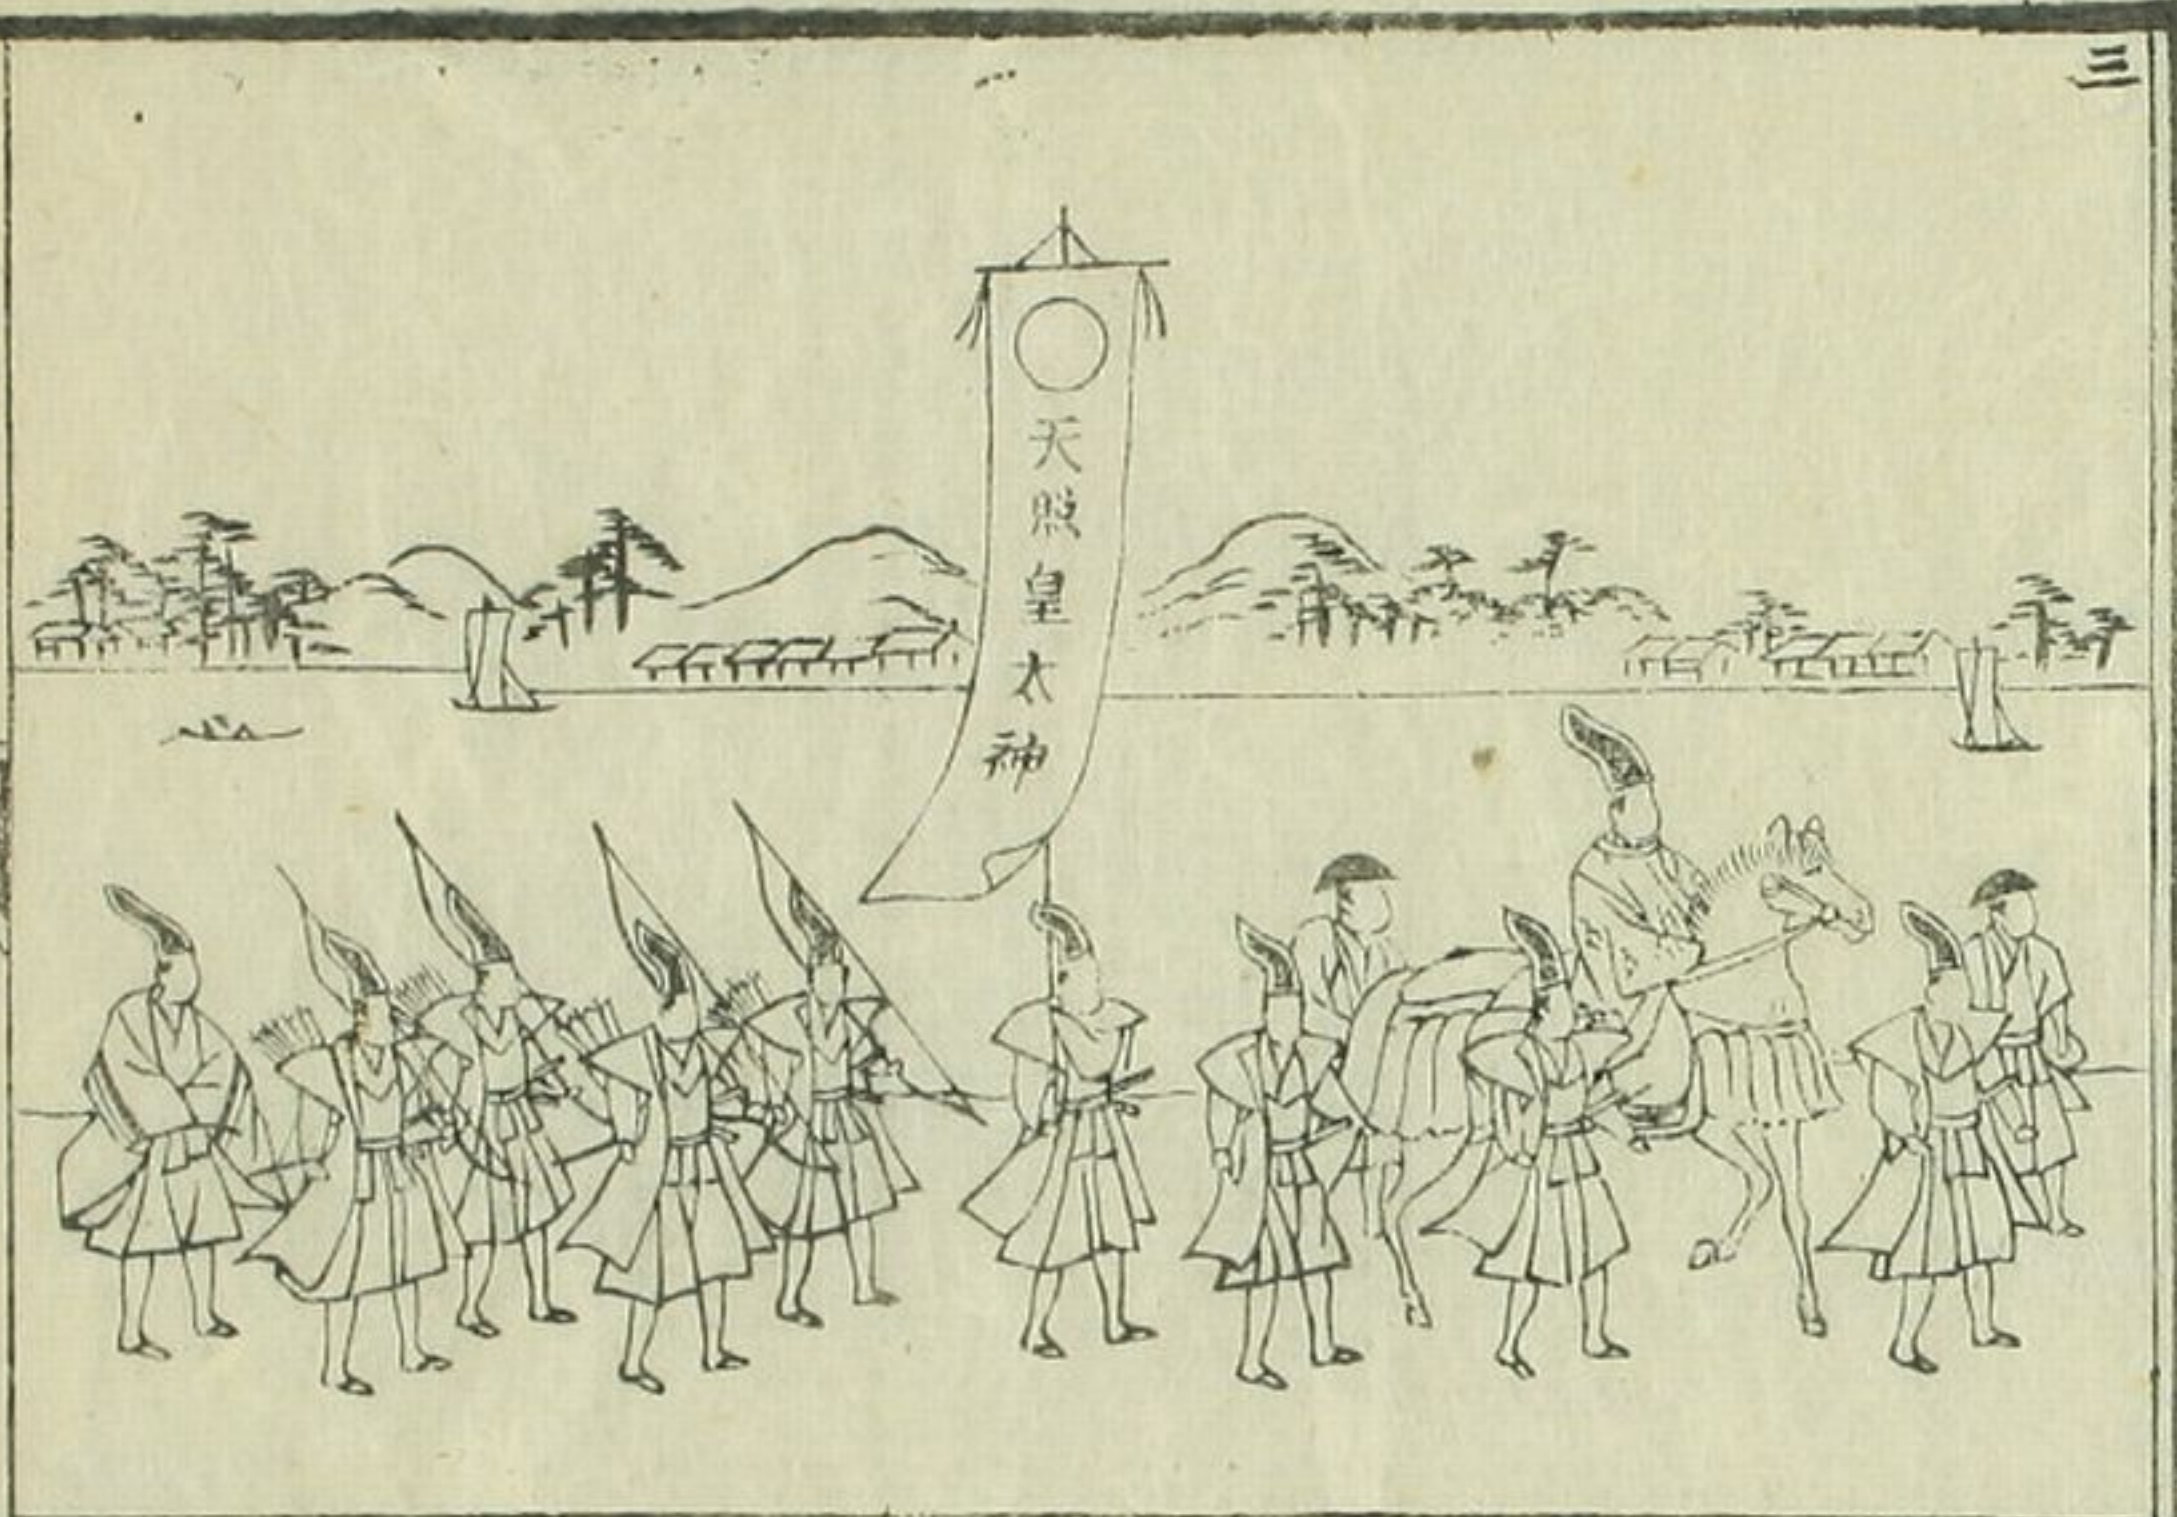 三
天照皇太神